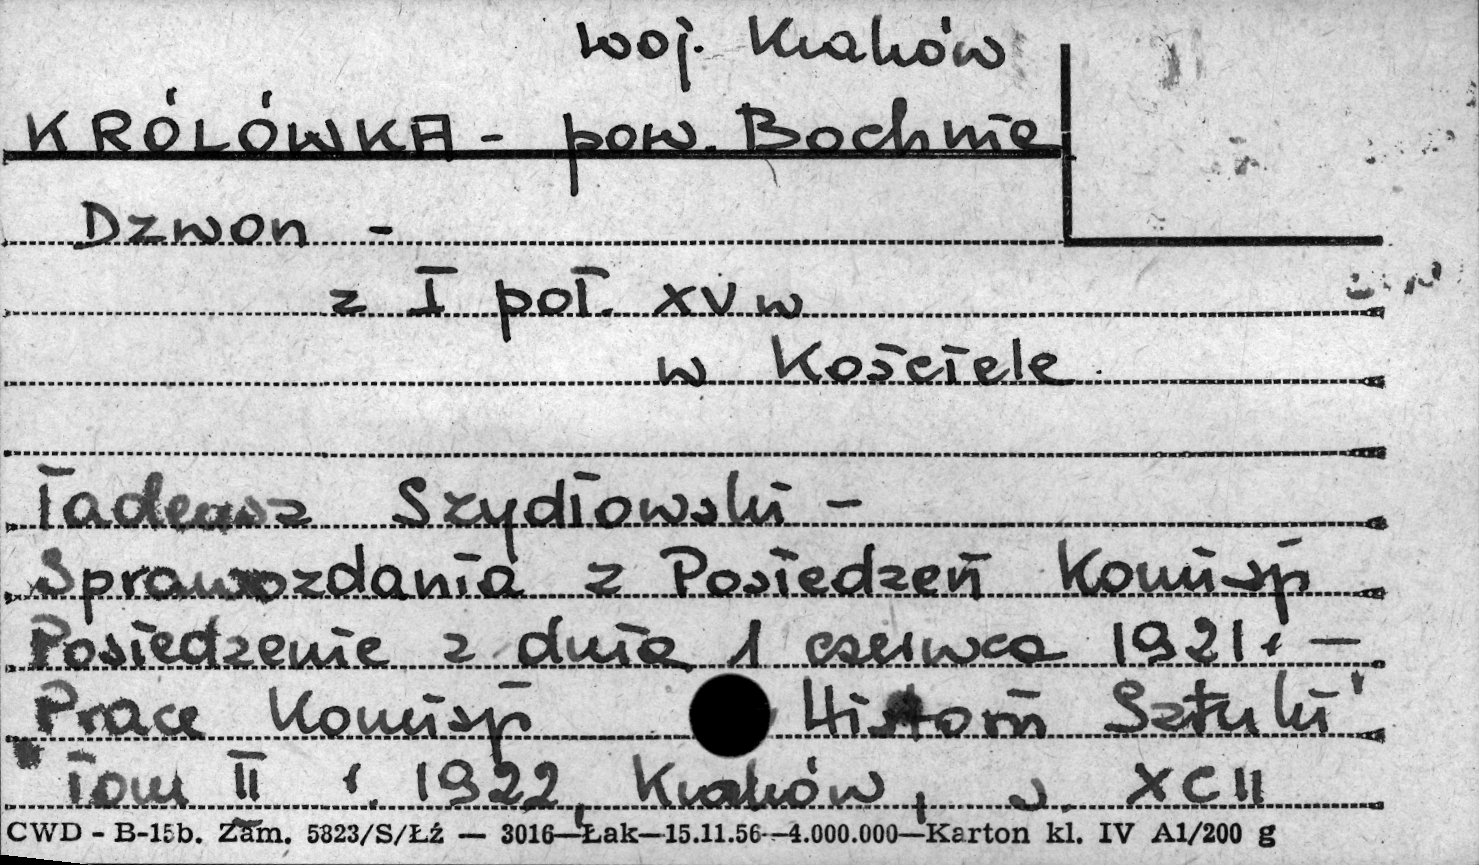 woj. Kraków
KRÓLÓWKA - pow. Bochnia
Dzwon -
z I poł. XV w
w Kościele.
Tadeusz Szydłowski -
Sprawozdania z Posiedzeń Komisji
Posiedzenie z dnia 1 czerwca 1921 r. —
Prace Komisji Historii Sztuki
Tom II r. 1922, Kraków, s. XCII
CWD - B-15b. Zam. 5823/S/Łź — 3016—Łak—15.11.56—4.000.000—Karton kl. IV A1/200 g